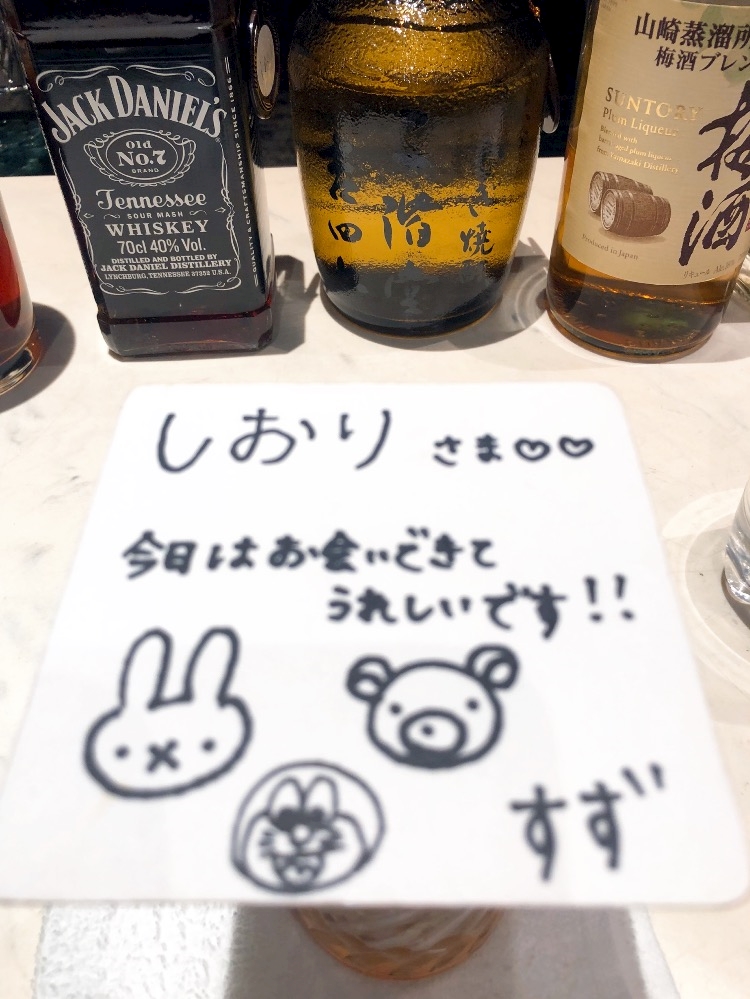 JACK DANIEL'S
Old
No.7
BRAND
Tennessee
SOUR MASH
WHISKEY
70cl 40% Vol.
DISTILLED AND BOTTLED BY
JACK DANIEL DISTILLERY
LYNCHBURG, TENNESSEE 37352 U.S.A.
QUALITY & CRAFTSMANSHIP SINCE 1866
山崎蒸溜所
梅酒ブレン
SUNTORY
Plum Liqueur
Blended with
Yamazaki Distillery
Produced in Japan
梅酒
リキュール
焼
しおり さま♡♡
今日はお会いできて
うれしいです!!
すず